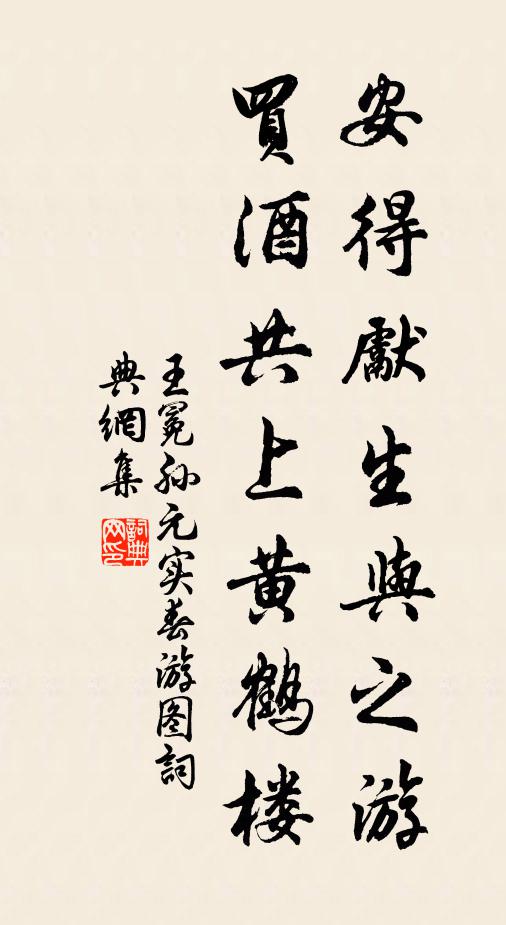 安得獻生與之游
買酒共上黄鶴楼
王冕孙元实春游图詞
典網集
詞典网印